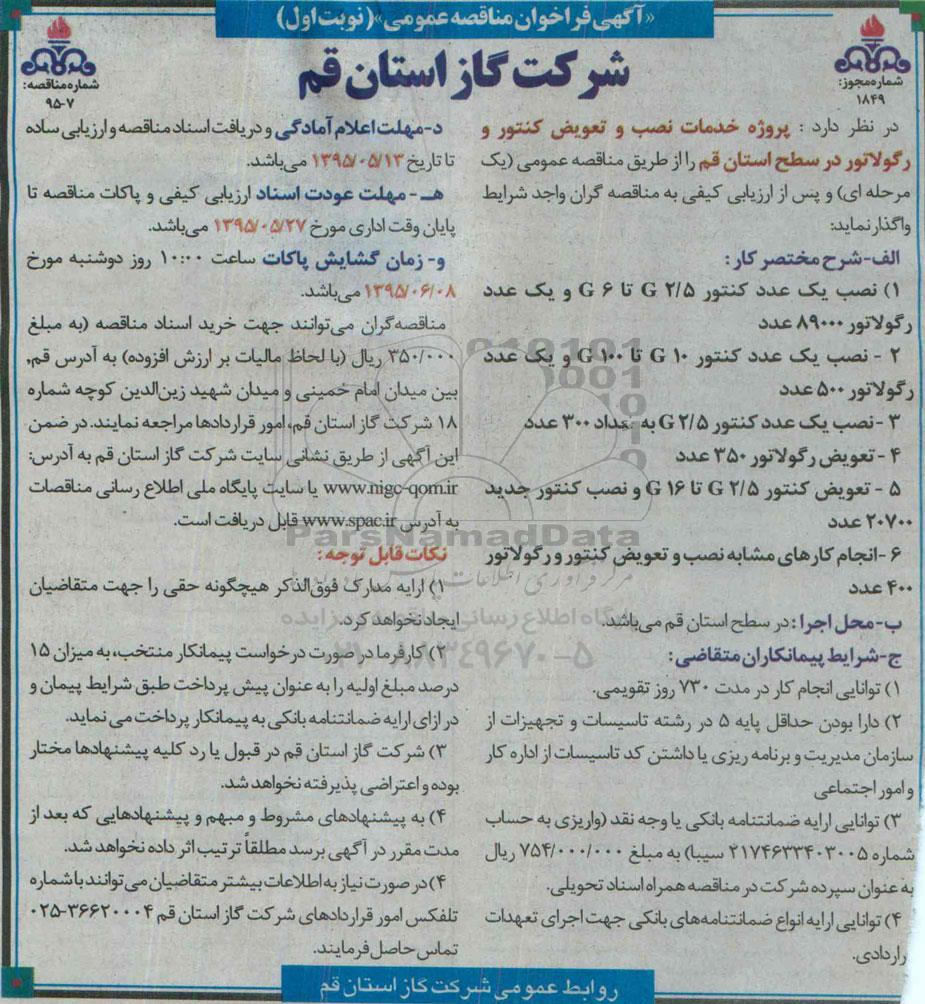 «آگهی فراخوان مناقصه عمومی»(نوبت اول)
شرکت گاز استان قم
شماره مجوز:
۱۸۴۹
شماره مناقصه:
۹۵-۷
در نظر دارد : پروژه خدمات نصب و تعویض کنتور و
رگولاتور در سطح استان قم را از طریق مناقصه عمومی (یک
مرحله ای) و پس از ارزیابی کیفی به مناقصه گران واجد شرایط
واگذار نماید:
الف-شرح مختصر کار:
۱) نصب یک عدد کنتور G ۲/۵ تا G ۶ و یک عدد
رگولاتور ۸۹۰۰۰ عدد
۲ - نصب یک عدد کنتور G ۱۰ تا G ۱۰۰ و یک عدد
رگولاتور ۵۰۰ عدد
۳ -نصب یک عدد کنتور G ۲/۵ به تعداد ۳۰۰ عدد
۴ - تعویض رگولاتور ۳۵۰ عدد
۵ - تعویض کنتور G ۲/۵ تا G ۱۶ و نصب کنتور جدید
۲۰۷۰۰ عدد
۶ -انجام کارهای مشابه نصب و تعویض کنتور و رگولاتور
۴۰۰ عدد
ب-محل اجرا : در سطح استان قم می‌باشد.
ج-شرایط پیمانکاران متقاضی:
۱) توانایی انجام کار در مدت ۷۳۰ روز تقویمی.
۲) دارا بودن حداقل پایه ۵ در رشته تاسیسات و تجهیزات از
سازمان مدیریت و برنامه ریزی یا داشتن کد تاسیسات از اداره کار
و امور اجتماعی
۳) توانایی ارایه ضمانتنامه بانکی یا وجه نقد (واریزی به حساب
شماره ۲۱۷۴۶۳۳۴۰۳۰۰۵ سیبا) به مبلغ ۷۵۴/۰۰۰/۰۰۰ ریال
به عنوان سپرده شرکت در مناقصه همراه اسناد تحویلی.
۴) توانایی ارایه انواع ضمانتنامه‌های بانکی جهت اجرای تعهدات
راردادی.
د-مهلت اعلام آمادگی و دریافت اسناد مناقصه و ارزیابی ساده
تا تاریخ ۱۳۹۵/۰۵/۱۳ می‌باشد.
هـ - مهلت عودت اسناد ارزیابی کیفی و پاکات مناقصه تا
پایان وقت اداری مورخ ۱۳۹۵/۰۵/۲۷ می‌باشد.
و- زمان گشایش پاکات ساعت ۱۰:۰۰ روز دوشنبه مورخ
۱۳۹۵/۰۶/۰۸ می‌باشد.
مناقصه‌گران می‌توانند جهت خرید اسناد مناقصه (به مبلغ
۳۵۰/۰۰۰ ریال (با لحاظ مالیات بر ارزش افزوده) به آدرس قم,
بین میدان امام خمینی و میدان شهید زین‌الدین کوچه شماره
۱۸ شرکت گاز استان قم، امور قراردادها مراجعه نمایند. در ضمن
این آگهی از طریق نشانی سایت شرکت گاز استان قم به آدرس:
www.nigc-qom.ir یا سایت پایگاه ملی اطلاع رسانی مناقصات
به آدرس www.spac.ir قابل دریافت است.
نکات قابل توجه :
۱) ارایه مدارک فوق‌الذکر هیچگونه حقی را جهت متقاضیان
ایجاد نخواهد کرد.
۲) کارفرما در صورت درخواست پیمانکار منتخب، به میزان ۱۵
درصد مبلغ اولیه را به عنوان پیش پرداخت طبق شرایط پیمان و
در ازای ارایه ضمانتنامه بانکی به پیمانکار پرداخت می نماید.
۳) شرکت گاز استان قم در قبول یا رد کلیه پیشنهادها مختار
بوده و اعتراضی پذیرفته نخواهد شد.
۴) به پیشنهادهای مشروط و مبهم و پیشنهادهایی که بعد از
مدت مقرر در آگهی برسد مطلقاً ترتیب اثر داده نخواهد شد.
۴) در صورت نیاز به اطلاعات بیشتر متقاضیان می‌توانند با شماره
تلفکس امور قراردادهای شرکت گاز استان قم ۳۶۶۲۰۰۰۴-۰۲۵
تماس حاصل فرمایند.
روابط عمومی شرکت گاز استان قم
ParsNamadData